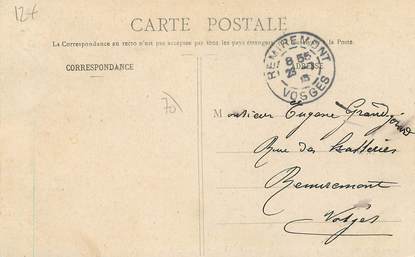 124
CARTE POSTALE
La Correspondance au recto n'est pas acceptée par tous les pays étrangers la Poste.
CORRESPONDANCE
ADRESSE
REMIREMONT
8 55
VOSGES
70
Monsieur Eugène Grandjean
Rue des
Remiremont
Vosges